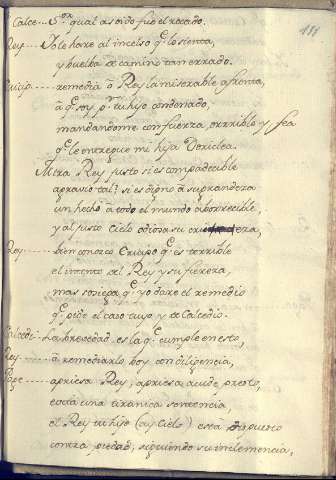 111
Calce. Sor qual a sido fue el rocado.
Rey Yo le hare al incelso qe lo sienta,
y buelba de camino tan errado.
Criap. remedia o Rey la miserable afronta,
a qe soy pr tu hijo condenado,
mandandome con fuerza, orrible y fea
qe le entregue mi hija Doriclea.
Mira Rey justo si es compadecible
agravio tal? si es digno a su grandeza
un hecho a todo el mundo aborrecible,
y al justo Cielo odiosa su
Rey bien conosco Criapo qe es terrible
el intento del Rey y su fiereza,
mas sosiega qe yo dare el remedio
qe pide el caso tuyo y de Calcedio.
Calcedi. La brevedad es la qe cumple en esto,
Rey a remediarlo boy con diligencia,
Pope apriesa Rey, apriesa acude presto,
evita una tiranica sentencia,
el Rey tu hijo (ay Cielo) está dispuesto
contra piedad, siguiendo su inclemencia,